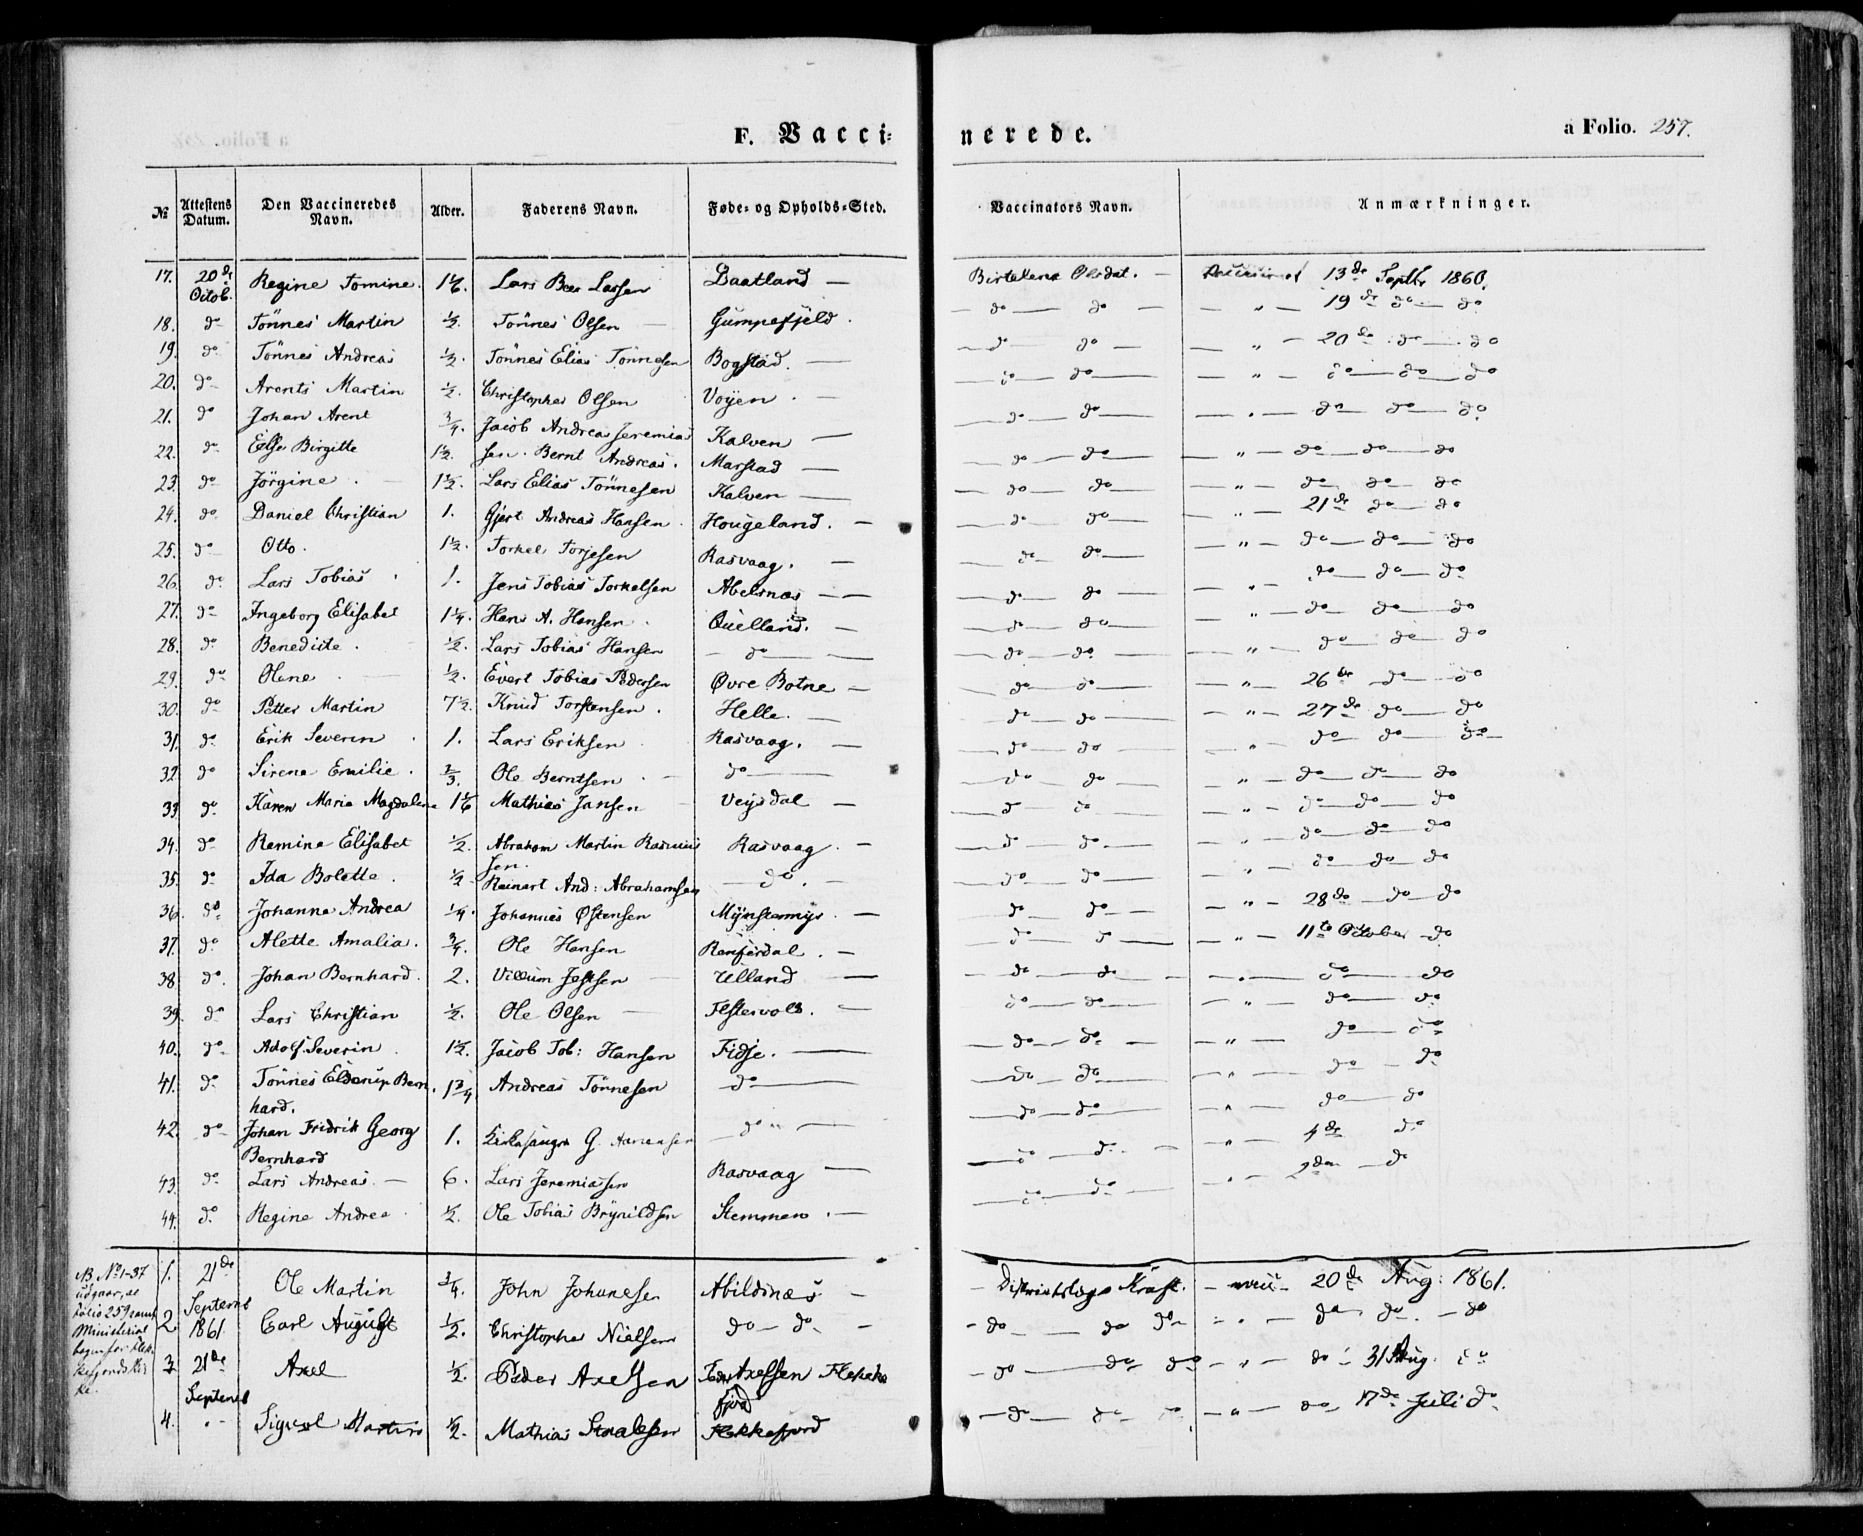 F. Vacci-
nerede.
a Folio. 257.
№ Attestens Datum. Den Vaccineredes Navn. Alder. Faderens Navn. Føde- og Opholds-Sted. Vaccinators Navn. Anmærkninger.
17. 20de Octob. Regine Tomine. 1 1/6. Lars Larsen Daatland — Olsdat. — 13de Septbr 1860.
18. do Tönnes Martin 1/2. Tönnes Olsen — Gumpefjeld. — do — do — — " — 19de do — do
19. do Tönnes Andreas 1/2. Tönnes Elias Tönnesen Bogstad. — do do — — " — 20de do — do
20. do Arents Martin 1/2. Christopher Olsen Voyen. — do — do — — " — do — do — do
21. do Johan Arent 3/4. Jacob Andreas Jeremias Kalven — do — do — — " — do — do — do
22. do Else Birgitte 1 1/2. sen. Bernt Andreas. Marstad — do — do — — " — do — do — do
23. do Jörgine. — 1 1/2. Lars Elias Tönnesen Kalven — do — do — — " — do — do — do
24. do Daniel Christian 1. Gjert Andreas Hansen. Hougeland. — do do — — " — 21de do — do
25. do Otto. 1 1/2. Torkel Torjesen Rasvaag. — do do — — " — do — do — do
26. do Lars Tobias 1. Jens Tobias Torkelsen Abelsnæs — do do — — " — do — do — do
27. do Ingeborg Elisabet 1 1/4. Hans A. Hansen. Quelland. — do — do — — " — do — do — do
28. do Benedicte. 1/2. Lars Tobias Hansen — do — — do — do — — " — do do do
29. do Olene 1/2. Evert Tobias Pedersen Øvre Botne — do do — — " — 26de do — do
30. do Petter Martin 7 1/2. Knud Torstensen. Helle. — do — do — — " — 27de do — do
31. do Erik Severin 1. Lars Eriksen Rasvaag. — do do — " — do — do — do
32. do Sirene Emilie. 2/3. Ole Berntsen. — do — — do do — — " — do — do — do
33. do Karen Marie Magdalene 1 1/6 Mathias Jansen Veisdal — do do — — " — do — do — do
34. do Remine Elisabet 1/2. Abraham Martin Rasmus Rasvaag. — do — do — — " — do — do — do
sen.
35. do Ida Bolette. 1/2 Reinert And: Abrahamsen — do. — — do — do — — " — do — do — do
36. do Johanne Andrea 1/4. Johannes Østensen — do do — — " — 28de — do — do
37. do Alette Amalia. 3/4. Ole Hansen — — " — 11te October do
38 do. Johan Bernhard. 2. Villum Ulland — do — do — — " — do — do
39. do Lars Christian 1/2. Ole Olsen — do — do — — " — do — do
40. do Adolf Severin 1 1/2. Jacob Tob: Hansen Fidje. — do — do — — " — do — do
41. do Tönnes Bern 1 3/4 Andreas Tönnesen do — do — do — " — do — do
hard.
42. do Johan Fridrik Georg 1. G. do — — do — do — — " — do — do
Bernhard
43. do Lars Andreas. — 6. Lars Jeremiassen Rasvaag — do — do. — — " — 4de do
44. do Regine Andrea 1/2. Ole Tobias Brynildsen Stemmen. — do — do — — " — 2den — do
NB. No 1-37
udgaar, se
folio 259 samt
Ministerial
bogen for Flek
kefjords Kir
ke.
1. 21de Septemb 1861. Ole Martin 3/4. John Johanesen Abildsnæs — Districtslæge Kraft. — 20de Aug: 1861.
2. Carl August 1/2. Christopher Nielsen do — do. — do — do do — " — do do. — do
3. 21de Septemb Axel 1/2. Peder Axelsen Axelsen Flekke — do — do do — " — do — 31 Aug. do
fjord
4. " Martin 1/2. Mathias Flekkefjord — do — do do — " — do 17de Juli do